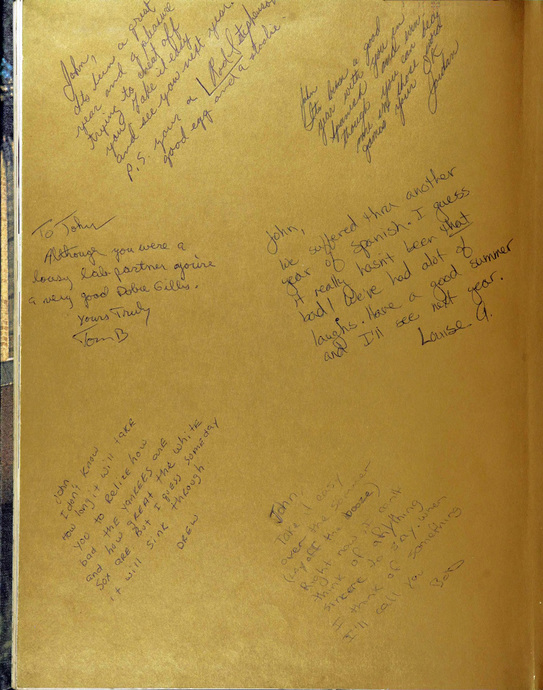 John,
Its been a great
year and I'll leave
trying to cheat off
you. Take it easy
and see you next year.
Rod Stephenson
P.S. your a
good egg and a stooie.
John
Its been a good
year with you in
Spanish and even
though you can beat
me in
games your O.K.
Jordan
To John
Although you were a
lousy lab partner you're
a very good Dobie Gillis.
Yours Truly
Tom B
John,
We suffered thru another
year of Spanish. I guess
it really hasn't been that
bad! We've had alot of
laughs. Have a good summer
and I'll see next year.
Louise G.
John
I don't know
how long it will take
you to relize how
bad the Yankees are
and how great the white
sox are But I guess someday
it will sink through
Drew
John,
Take it easy
over the summer
(lay off the booze)
Right now I can't
think of anything
sincere to say. When
I think of something
I'll call you
Bob